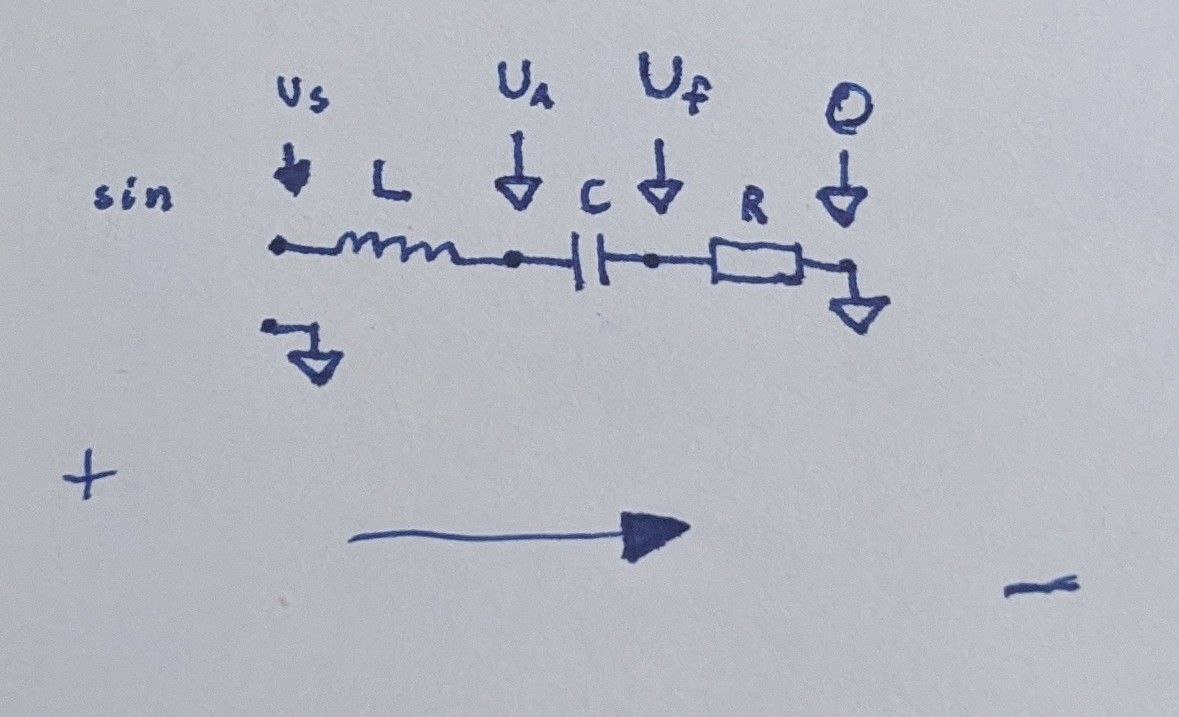 Us UA Uf 0
sin L C R
+
−